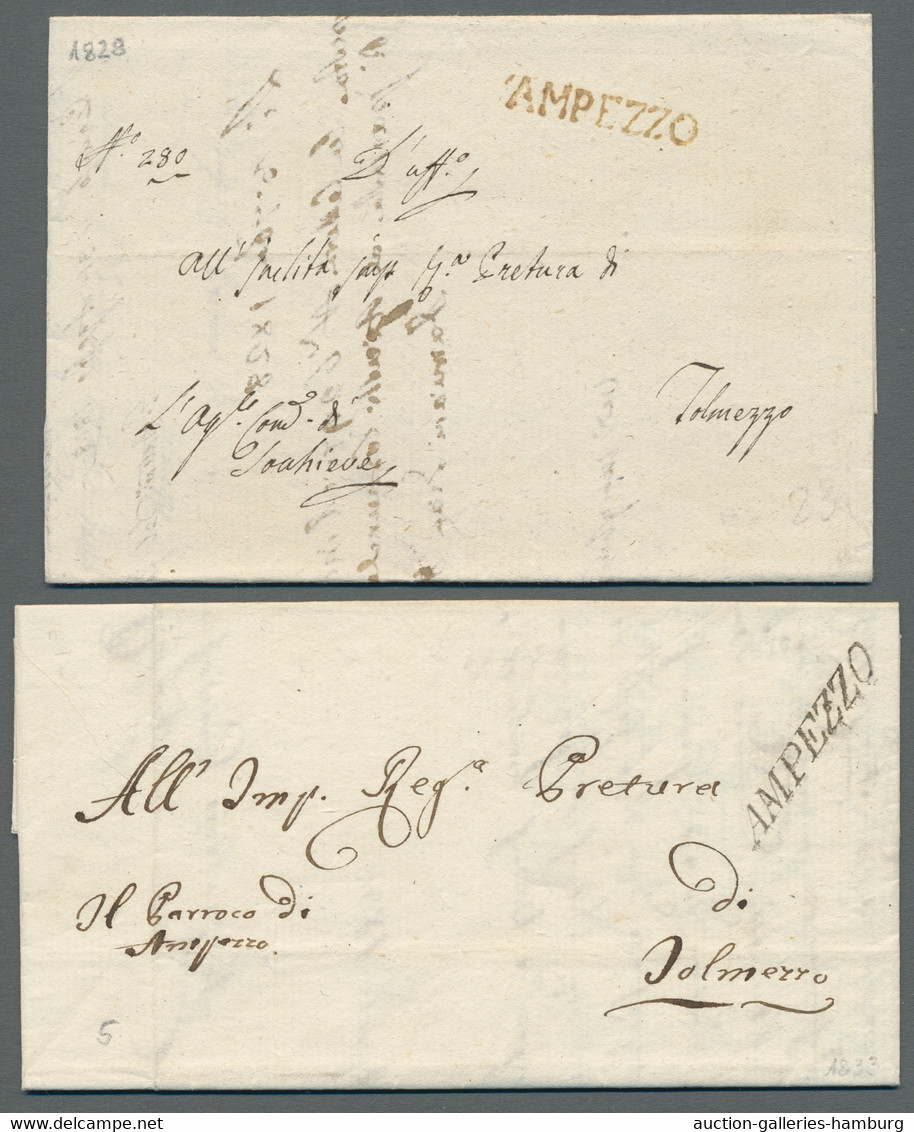 1828
AMPEZZO
N.o 280
D'uff.o
all' Inclita Imp R.a Pretura di
Tolmezzo
L'Ag.le Com.le di
Socchieve
23
AMPEZZO
All' Imp. Reg.a Pretura
di
Tolmezzo
Il Parroco di
Ampezzo
5
1833
auction-galleries-hamburg